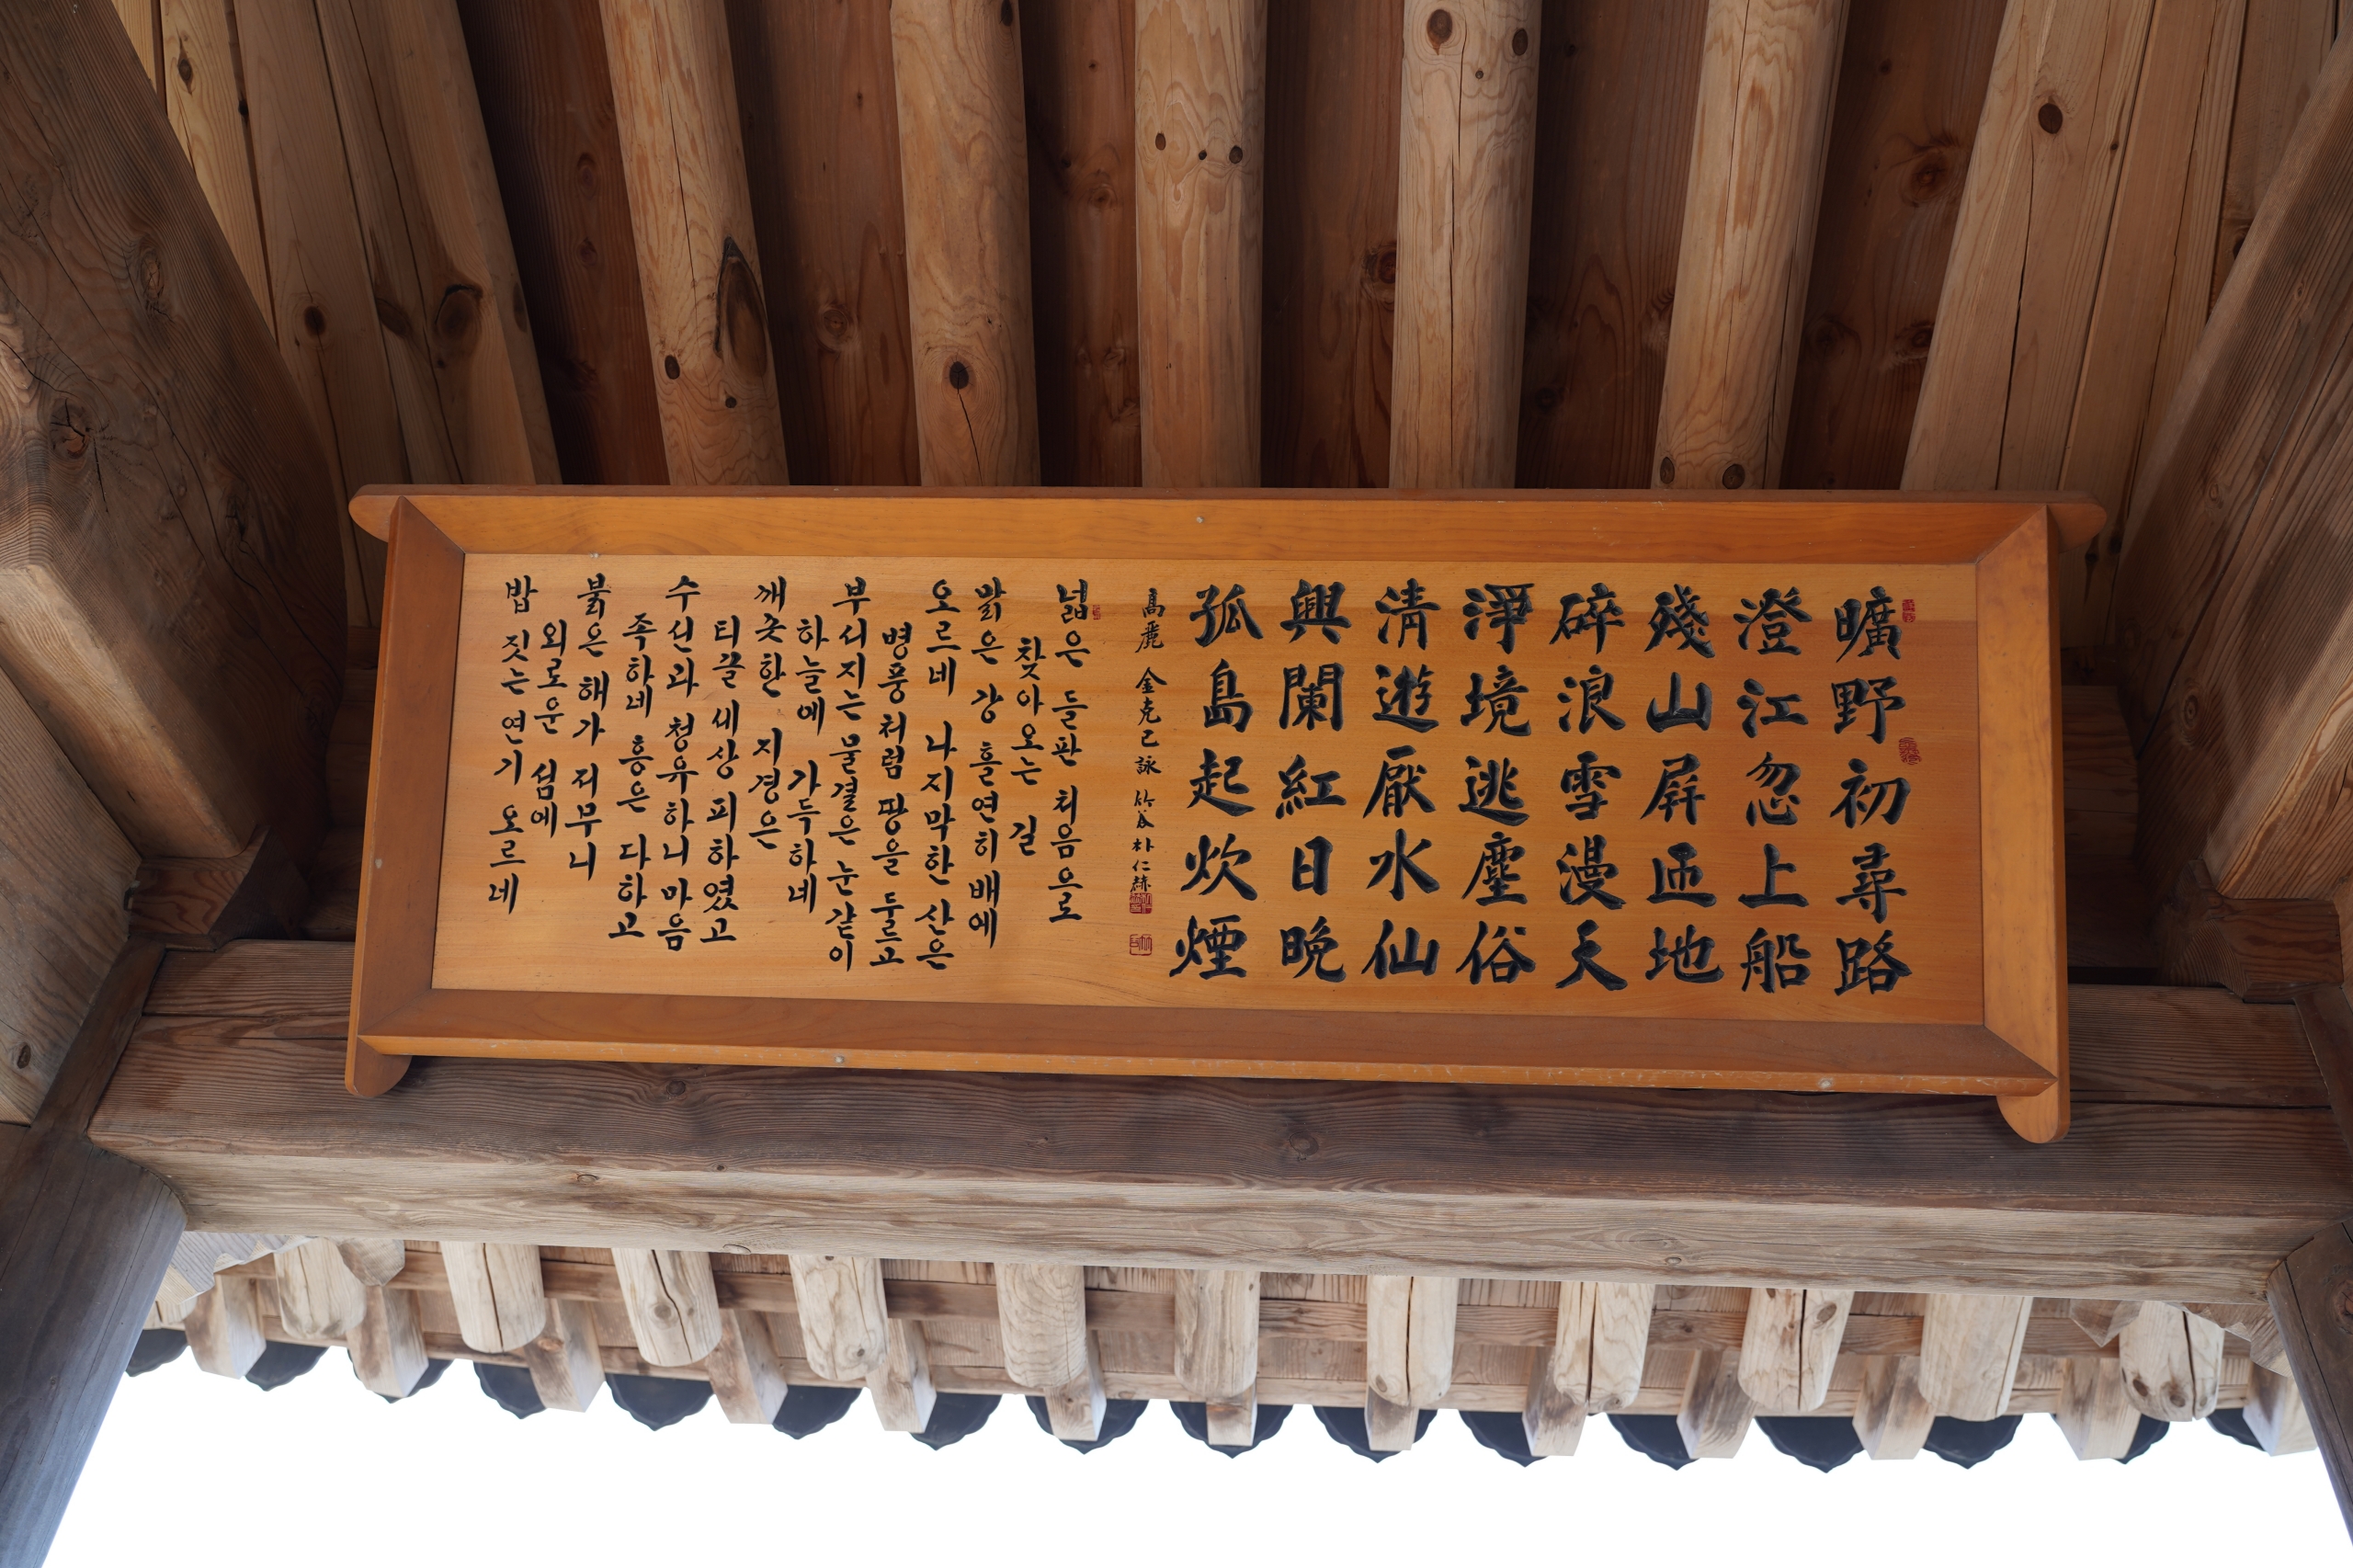 曠野初尋路
澄江忽上船
殘山屛匝地
碎浪雪漫天
淨境逃塵俗
淸遊厭水仙
興闌紅日晩
孤島起炊煙
高麗 金克己 詠 竹谷 朴仁緖
넓은 들판 처음으로
찾아오는 길
맑은 강 흘연히 배에
오르네 나지막한 산은
병풍처럼 땅을 두르고
부서지는 물결은 눈같이
하늘에 가득하네
깨긋한 지경은
티끌 세상 피하였고
수선과 청유하니 마음
족하네 흥은 다하고
붉은 해가 저무니
외로운 섬에
밥 짓는 연기 오르네